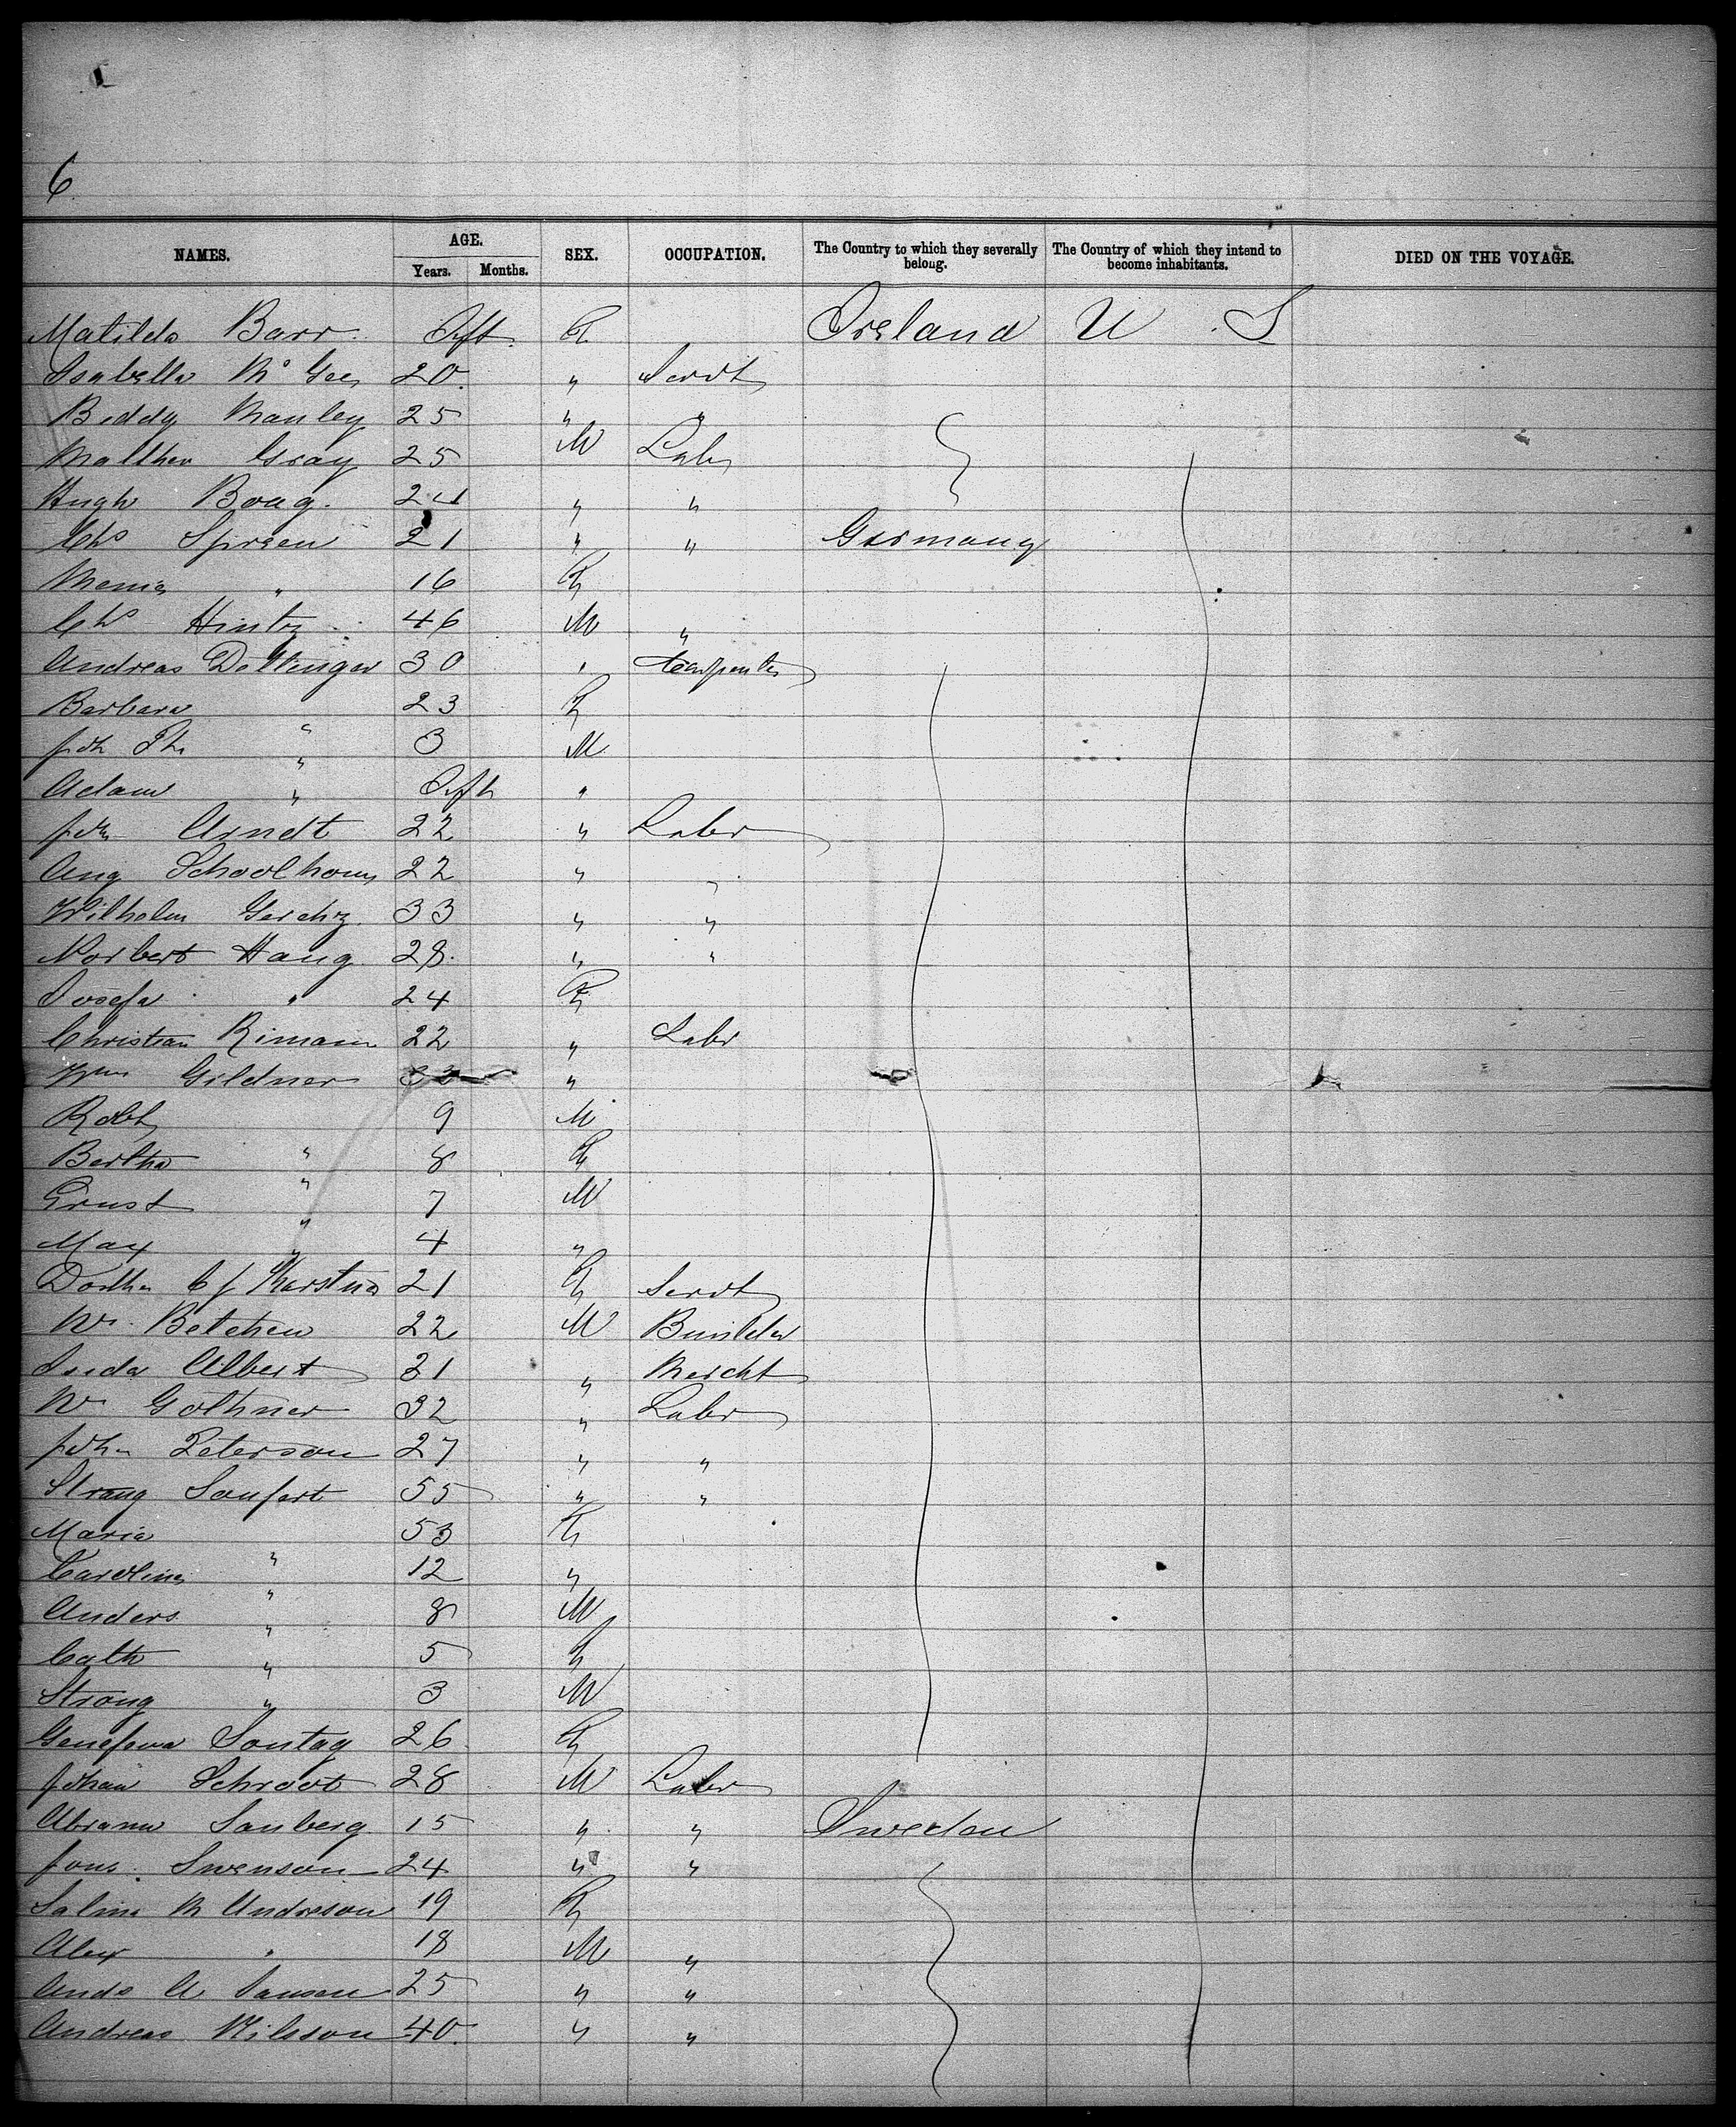 6
NAMES. AGE. Years. Months. SEX. OCCUPATION. The Country to which they severally belong. The Country of which they intend to become inhabitants. DIED ON THE VOYAGE.
Matilda Barr Inft F Ireland U S
Isabella McGee 20 " Servt
Biddy Manley 25 " "
Matthew Gray 25 M Labr
Hugh Boag 24 " "
Chs Spireen 21 " " Germany
Menia " 16 F
Chs Hintz 46 M "
Andreas Dettinger 30 " Carpenter
Barbara " 23 F
Joh Ph " 3 M
Adam " Inft "
Joh Arndt 22 " Labr
Aug Schoolhouse 22 " "
Wilhelm 33 " "
Norbert Haug 28 " "
Josefa " 24 F
Christian Rimann 22 " Labr
Wm Gildner "
Robt " 9 M
Bertha " 8 F
Ernst " 7 M
May " 4 "
21 F Servt
W. Betchen 22 M Builder
Albert 21 " Mercht
W. Gothner 32 " Labr
John Peterson 27 " "
Strang Sonfert 55 " "
Maria " 53 F
Caroline " 12 "
Anders " 8 M
Cath " 5 F
Strang " 3 M
Genefewa Sontag 26 F
Johan Schroot 28 M Labr
Abram Sanberg 15 " " Sweden
Jons Swenson 24 " "
Salina M Anderson 19 F
Alex " 18 M "
Ands A Jansen 25 " "
Andreas Nilsson 40 " "